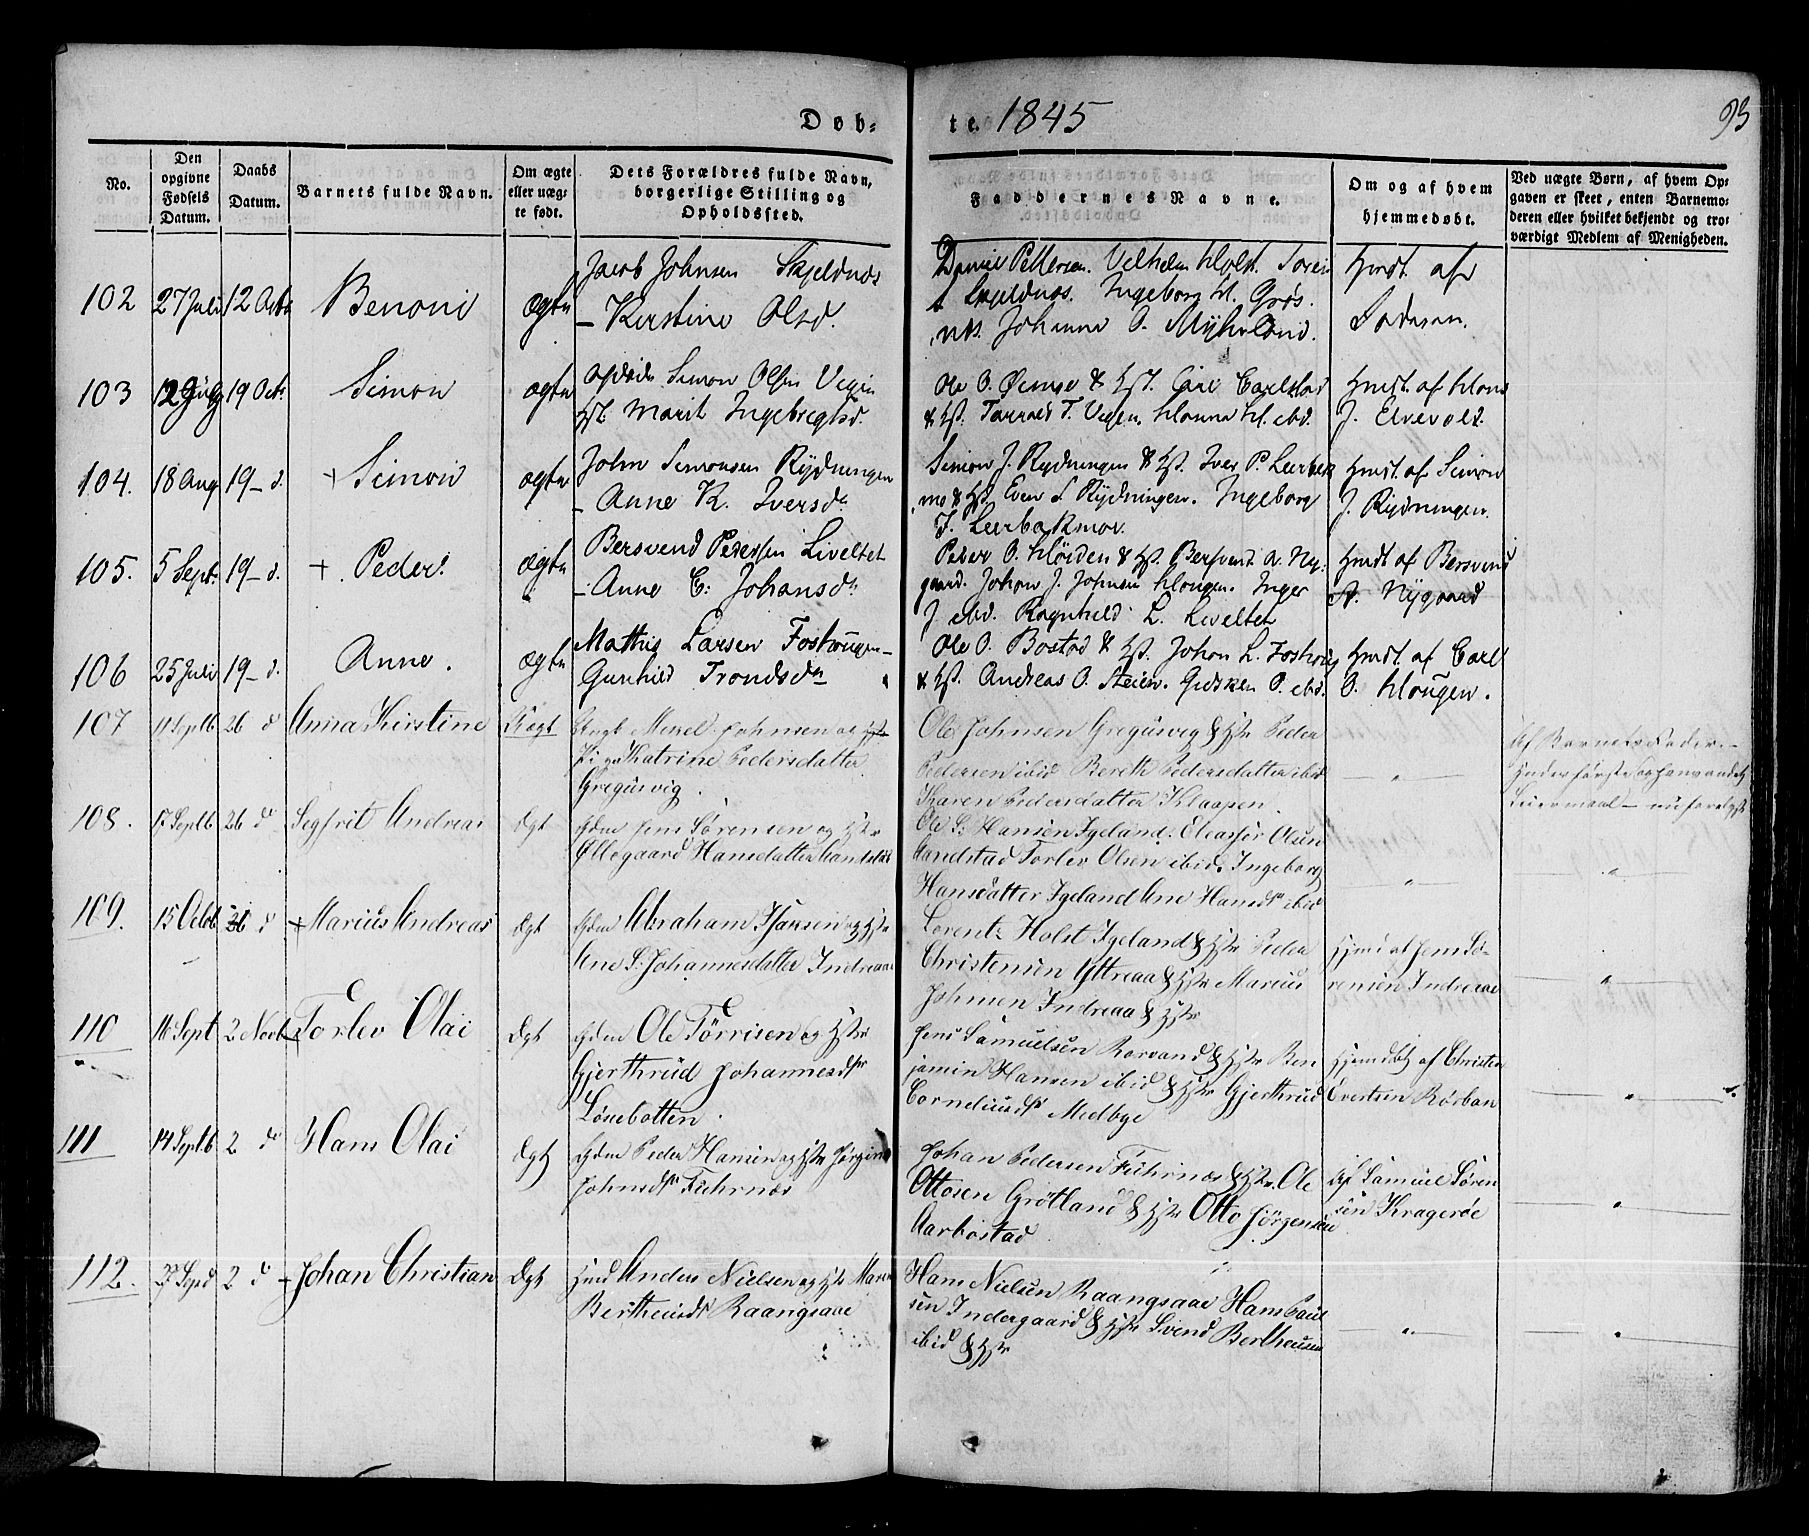 Døb-
te. 1845
93
No.
Den opgivne Fødsels Datum.
Daabs Datum.
Barnets fulde Navn.
Om ægte eller uægte født.
Dets Forældres fulde Navn, borgerlige Stilling og Opholdssted.
Faddernes Navne.
Om og af hvem hjemmedøbt.
Ved uægte Børn, af hvem Opgaven er skeet, enten Barnemoderen eller hvilket bekjendt og troværdigt Medlem af Menigheden.
102 27 Juli 12 Octb Benoni ægte
Jacob Johnsen Skjeldnæs
- Kirstine Olsd.
Daniel Pettersen. Vilhelm Holst. Søren
Skjeldnæs. Ingeborg H. Grøs-
næs. Johanne O. Myhrlund
Hmdt. af
103 19 Octr. Simon ægte
Simon Olsen Vegen
Hst. Marit Ingebregtsd.
Ole O. & Hst. Carl Carlstad
& Hst. Tarrald T. Vegen. Hanna H. ebd.
Hmdt. af Hans
J. Elvevolt.
104. 18 Aug 19 - d. + Simon ægte
John Simonsen Rydningen
- Anne K. Iversdr
Simon J. Rydningen & Hst. Iver P. Leirbek
mo & Hst. Even S. Rydningen. Ingeborg
J. Leerbakmoe.
Hmdt. af Simon
J. Rydningen.
105. 5 Septr. 19 - d. + Peder. ægte
Bersvend Pedersen Liveltet
- Anne C: Johansdr
Peder O. Høiden & Hst. Bersvend A. Ny-
gaard. Johan J. Johnsen Hougen. Inger
J. ebd. Ragnhild L. Liveltet
Hmdt af Bersvend
A. Nygaard
106 25 Juli 19 - d. Anne. ægte
Mathis Larsen Foshougen
Gunhild Trondsdr
Ole O. Bostad & Hst. Johan L. Foshoug
& Hst. Andreas O. Steien. Gidsken P. ebd.
Hmdt. af Carl
O. Hougen.
107 11 Septb 26 d Anna Kirstine Uægt
Ungk Johnsen og
Pige Katrine Pedersdatter
Gregusvig.
Ole Johnsen Gregusvig & Hstr Peder
Pedersen ibid Bereth Pedersdatter ibid
Karen Pedersdatter Klaapen.
Af Barnets Fader -
108. 17 Septb 26 do Segfrit Andreas Ægt
Gdm Jens Sørensen og Hstr
Øllegaard Hansdatter Aandstad
Ole S: Hansen Igeland. Eleasser Olsen
Aandstad Torlev Olsen ibid. Ingeborg
Hansdatter Igeland Ane Hansdr ibid
109. 15 Octob 26 d + Marius Andreas Ægt
Gdm Abraham Hansen og Hstr
Ane S: Johannesdatter Indreaae
Lorentz Holst Igeland & Hstr Peder
Christensen Yttreaa & Hstr Marius
Johnsen Indreaa & Hstr
Hjemd af Jens Sø-
rensen Indreaae
110 16 Sept 2 Novb Torlev Olai Ægt
Gdm Ole Tørrisen og Hstr
Gjerthrud Johannesdr
Lønebotten.
Jens Samuelsen Rorvand & Hstr Ben
jamin Hansen ibid & Hstr Gjerthrud
Corneliusdr Medbye
Hjemdbt af Christen
Evertsen Rørban
111 14 Septb 2 do Hans Olai Ægt
Gdm Peder Hansen og Hstr Jørgine
Johnsdr Fuhrnæs
Johan Pedersen Fuhrnæs & Hstr. Ole
Ottosen Grøtland & Hstr Otto Jørgensen
Aarbostad
af Samuel Søren
sen Kragerøe
112. 27 Sepd 2 d + Johan Christian Ægt
Huud Anders Nielsen og Hstr Maren
Bertheusdr Raangsaae
Hans Nielsen Raangsaae Hans Paul
sen Indergaard & Hstr Svend Bertheusen
ibid & Hstr